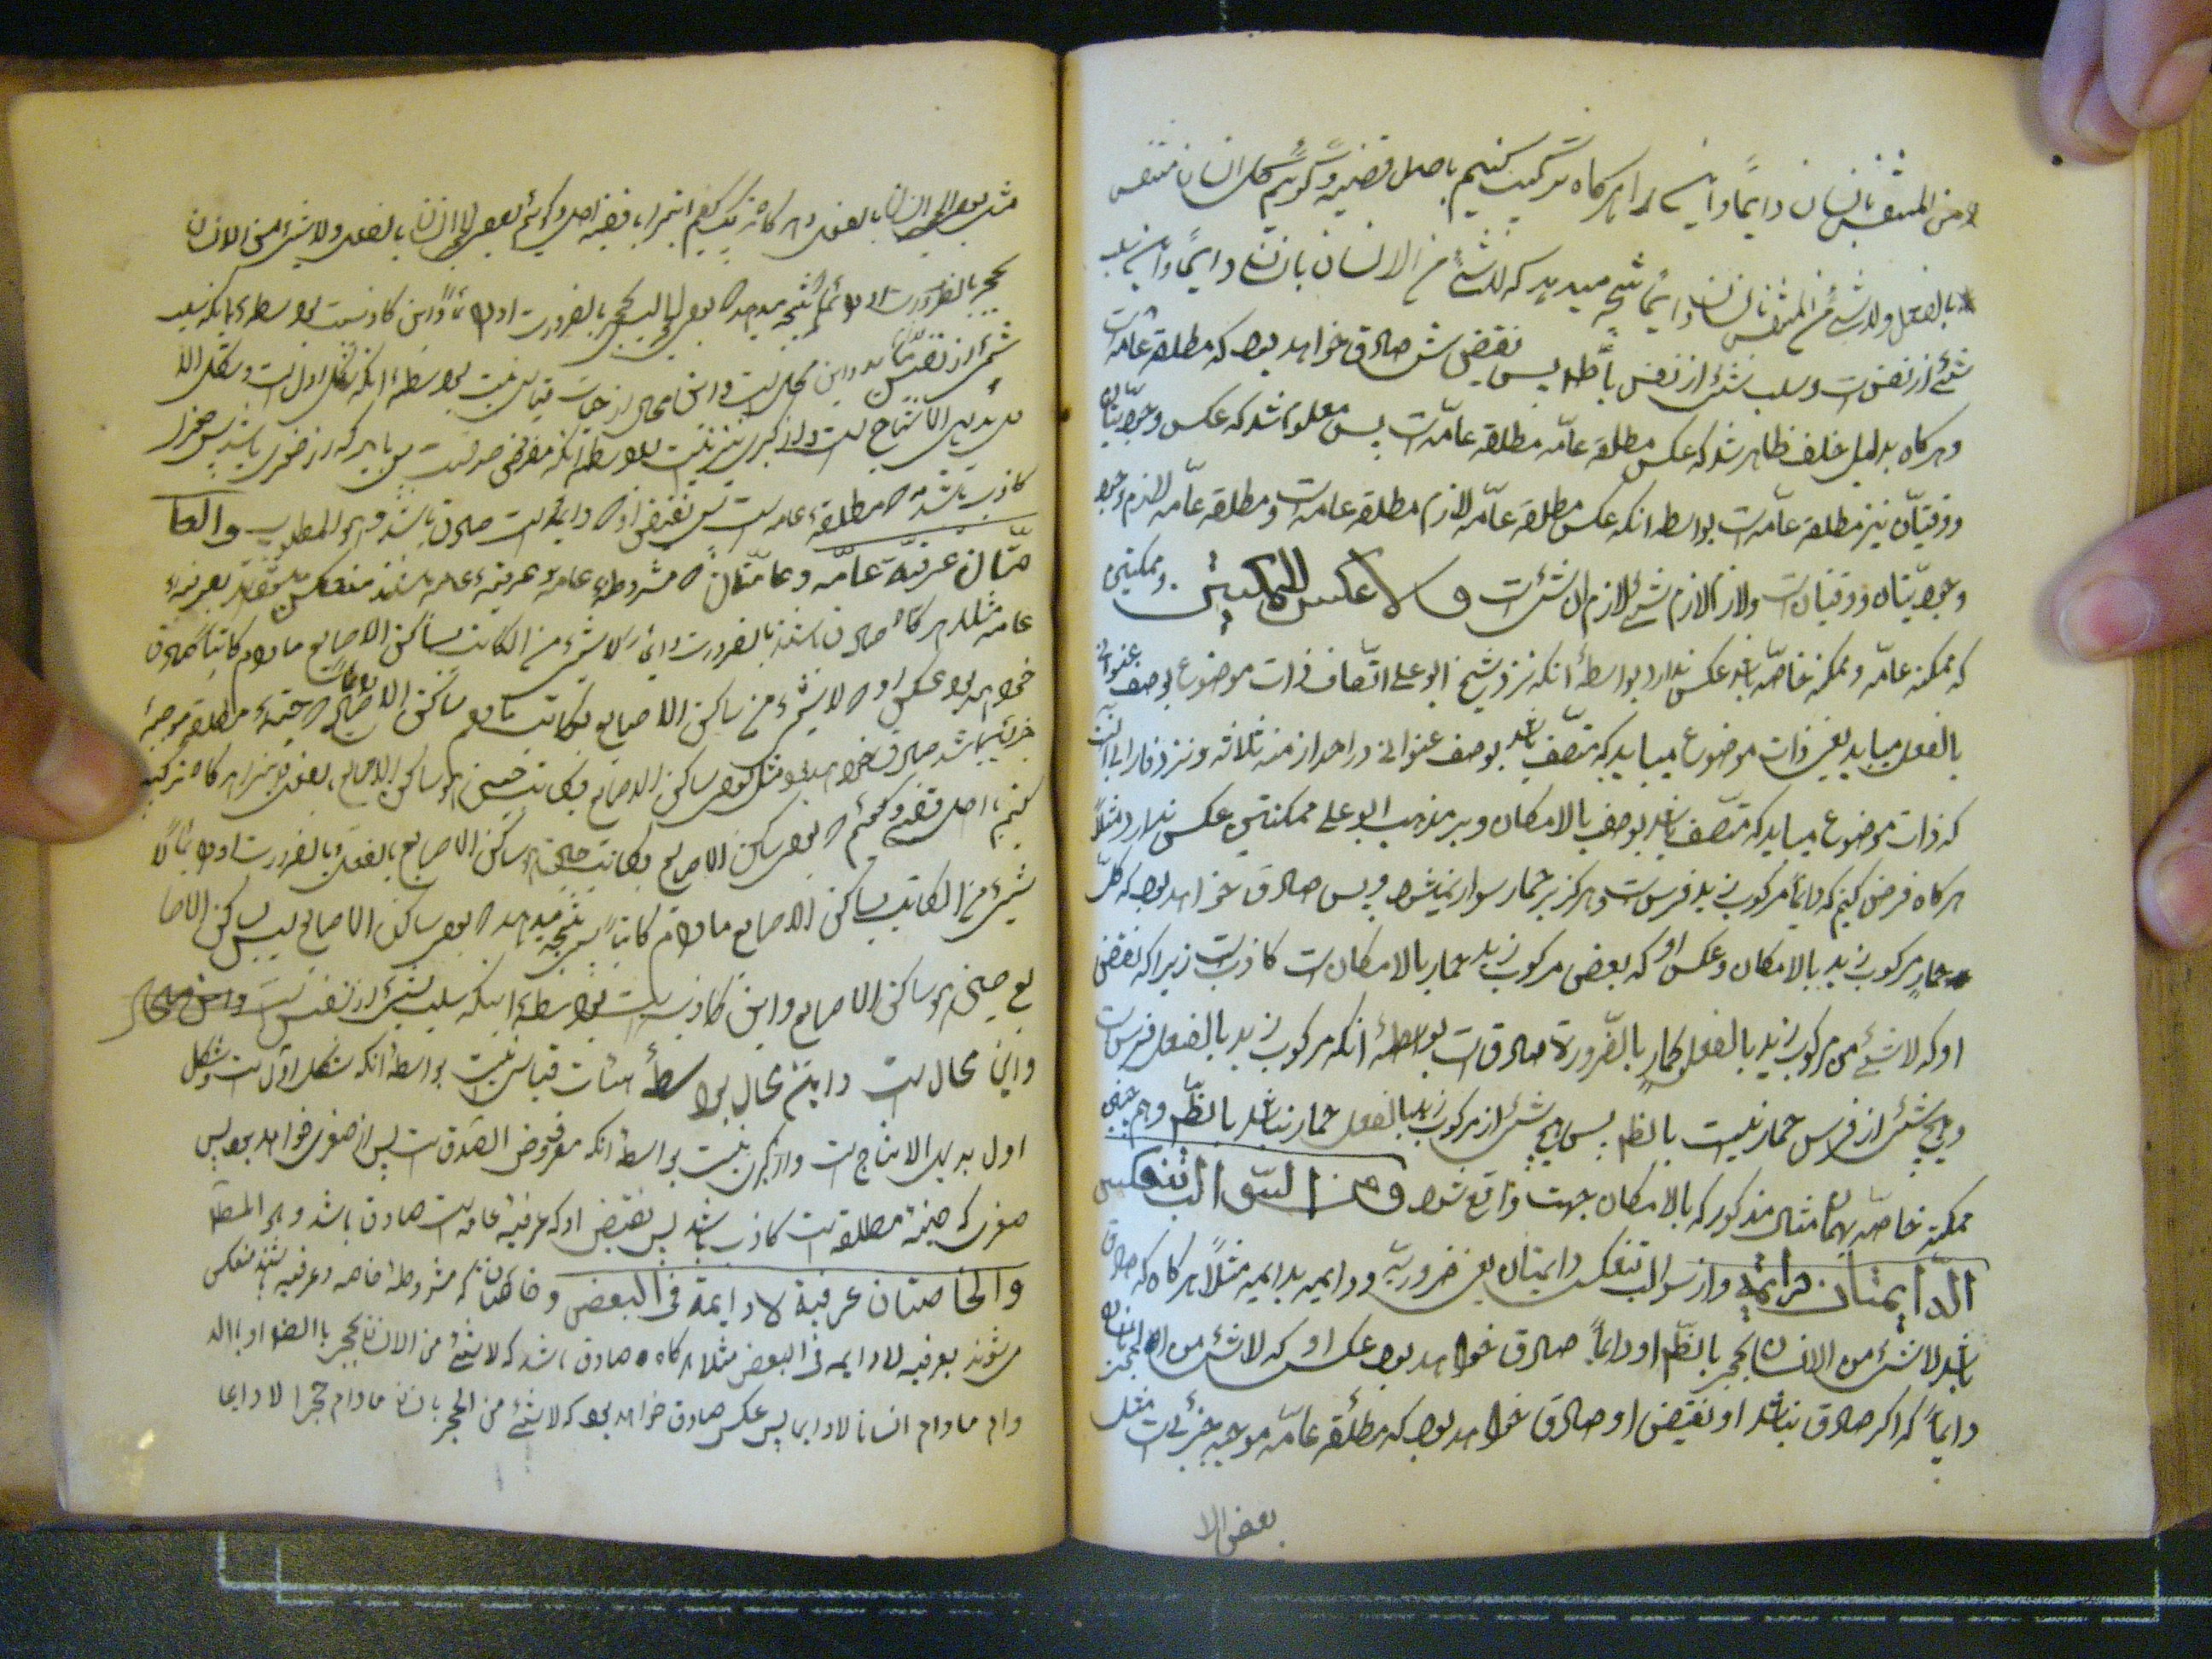 من المتنفس بانسان دایماً و این را هرگاه ترکیب کنیم باصل قضیه و گوییم کل انسان متنفس
بالفعل و لاشئ من المتنفس بانسان دایماً نتیجه میدهد که لاشئ من الانسان بانسان دایماً و این سلب
شئ از نفس است و سلب شئ از نفس باطل پس نقیضش صادق خواهد بود که مطلقه عامه است
و هرگاه بدلیل خلف ظاهر شد که عکس مطلقه عامّه مطلقه عامّه است پس معلوم شد که عکس وجودیتان
و وقتیتان نیز مطلقه عامّه است بواسطه انکه عکس مطلقه عامّه لازم مطلقه عامه است و مطلقه عامّه لازم وجود
وجودیتان و وقتیتان است و لازم لازم شئ لازم ان شئ است ولا عکس للممکنتین و ممکنتین
که ممکنه عامّه و ممکنه خاصّه باشد عکس ندارد بواسطهٔ انکه نزد شیخ ابو علی اتّصاف ذات موضوع بوصف عنوانی
بالفعل میباید یعنی ذات موضوع میباید که متّصف باشد بوصف عنوانی در احد ازمنه ثلاثه و نزد فارابی انست
که ذات موضوع میباید که متّصف باشد بوصف بالامکان و بر مذهب ابو علی ممکنتین عکس ندارد مثلاً
هرگاه فرض کنیم که دایماً مرکوب زید فرس است و هرگز بر حمار سوار نمیشود پس صادق خواهد بود که کلّ
حمار مرکوب زید بالامکان و عکس او که بعضی مرکوب زید حمار بالامکان است کاذب است زیرا که نقیض
او که لاشئ من مرکوب زید بالفعل بحمار بالضّرورة صادق است بواسطهٔ انکه مرکوب زید بالفعل فرس است
و هیچ شئ از فرس حمار نیست بالضّ پس هیچ شئ از مرکوب زید بالفعل حمار نباشد بالضّ و همچنین
ممکنه خاصّه بهمان مثال مذکور که بالامکان جهت واقع شود و من السّوالب تنعکس
الدّایمتان دایمة و از سوالب تنعکس دایمتان یعنی ضروریّه و دایمه بدایمه مثلاً هرگاه که صادق
باشد لاشئ من الانسان بحجر بالضّ او دایماً صادق خواهد بود عکس او که لاشئ من الحجر بانسان
دایماً که اگر صادق نباشد او نقیض او صادق خواهد بود که مطلقه عامّه موجبه جزئیه است مثل
بعض الا
مثل بعض الحجر انسان بالفعل و هرگاه ترکیب کنیم اینرا با قضیه اصل و گوئیم بعض الحجر انسان بالفعل و لاشئ من الانسان
بحجر بالضرورت او دائماً نتیجه میدهد که بعض الحجر لیس بحجر بالضرورت او دائماً و این کاذبست بواسطهٔ انکه سلب
شئ از نفس و این محال است و این محال از هیأت قیاس نیست بواسطهٔ انکه شکل اول است و شکل اول
بدیهی الانتاج است و از کبری نیز نیست بواسطه انکه مفروض صدقست پس باید که از صغری باشد پس صغری
کاذب باشد که مطلقهٔ عامه است پس نقیض او که دایمه است صادق باشد و هو المطلوب والعا
متان عرفیّة عامّه و عامّتان که مشروطهٔ عامه و عرفیهٔ عامه باشند منعکس میشوند بعرفیهٔ
عامه مثلا هرگاه صادق باشد بالضرورت او دایماً لاشئ من الکاتب بساکن الاصابع مادام کاتباً صادق
خواهد بود عکس او که لاشئ من ساکن الاصابع بکاتب مادام ساکن الاصابع حینیهٔ مطلقه موجبهٔ
جزئیه باشد صادق خواهد بود مثل بعض ساکن الاصابع کاتب حین هو ساکن الاصابع بالفعل و اینرا هرگاه ترکیب
کنیم با اصل قضیه و گوئیم که بعض ساکن الاصابع کاتب حین هو ساکن الاصابع بالفعل و بالضرورت او دایماً لا
شئ من الکاتب بساکن الاصابع مادام کاتباً پس نتیجه میدهد که بعض ساکن الاصابع لیس بساکن الاصا
بع حین هو ساکن الاصابع و این کاذب است بواسطهٔ اینکه سلب شئ از نفس است
و این محال است و این محال بواسطهٔ هیئات قیاس نیست بواسطهٔ انکه شکل اوّل است و شکل
اول بدیهی الانتاج است و از کبری نیست بواسطه انکه مفروض الصّدق است پس از صغری خواهد بود پس
صغری که حینیة مطلقه است کاذب باشد پس نقیض او که عرفیهٔ عامه است صادق باشد و هو المط
والخاصتان عرفیة لادایمة فی البعض و خاصتان که مشروطهٔ خاصه و عرفیه باشند منعکس
میشوند بعرفیه لادایمه فی البعض مثلا هرگاه صادق باشد که لاشئ من الانسان بحجر بالضو او بالد
وام مادام انسانا لادایما پس عکس صادق خواهد بود که لاشئ من الحجر بانسان مادام حجرا لادایما